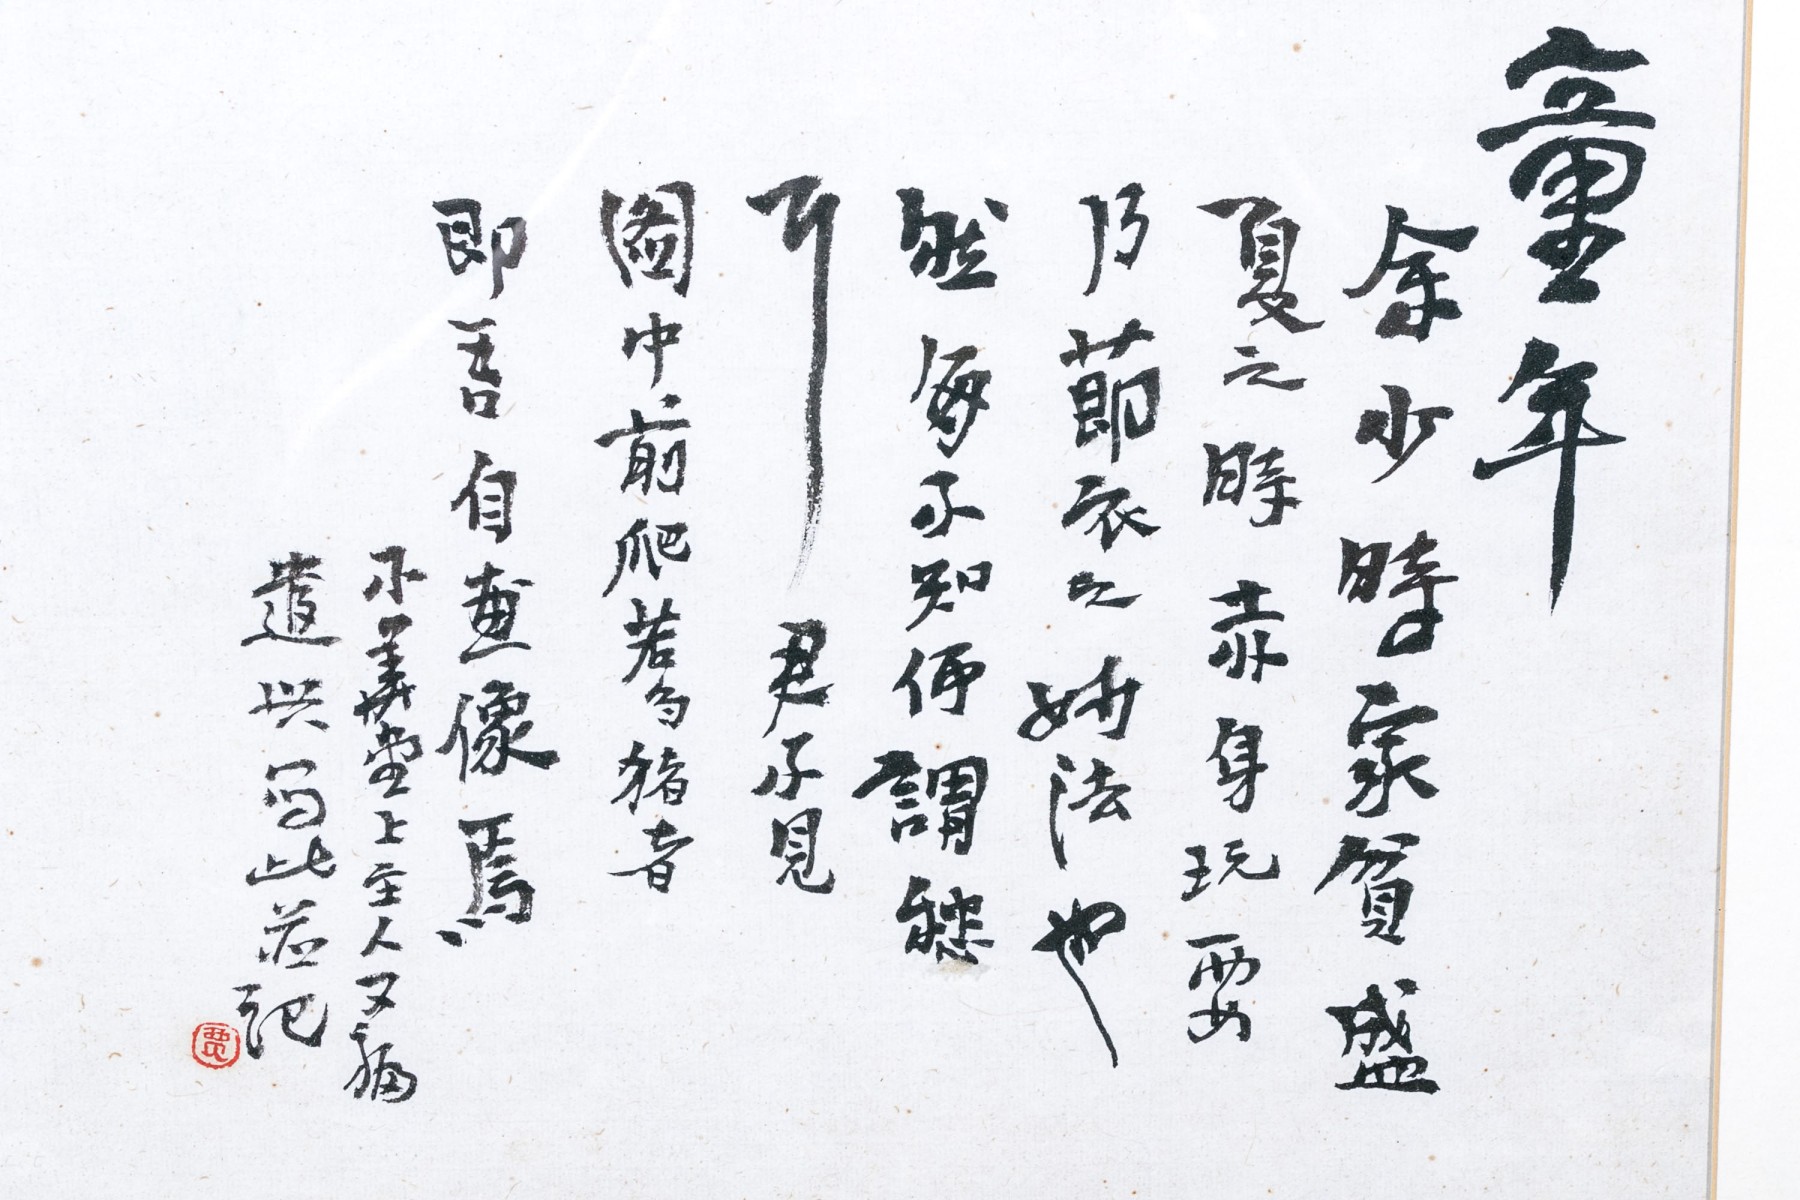 童年
余少時家貧盛
夏之時赤身玩耍
乃節衣之妙法也
然每不知何謂愁
耳君不見
圖中前爬若烏豬者
即吾自畫像焉
不美堂上主人又福
遣興寫此并記